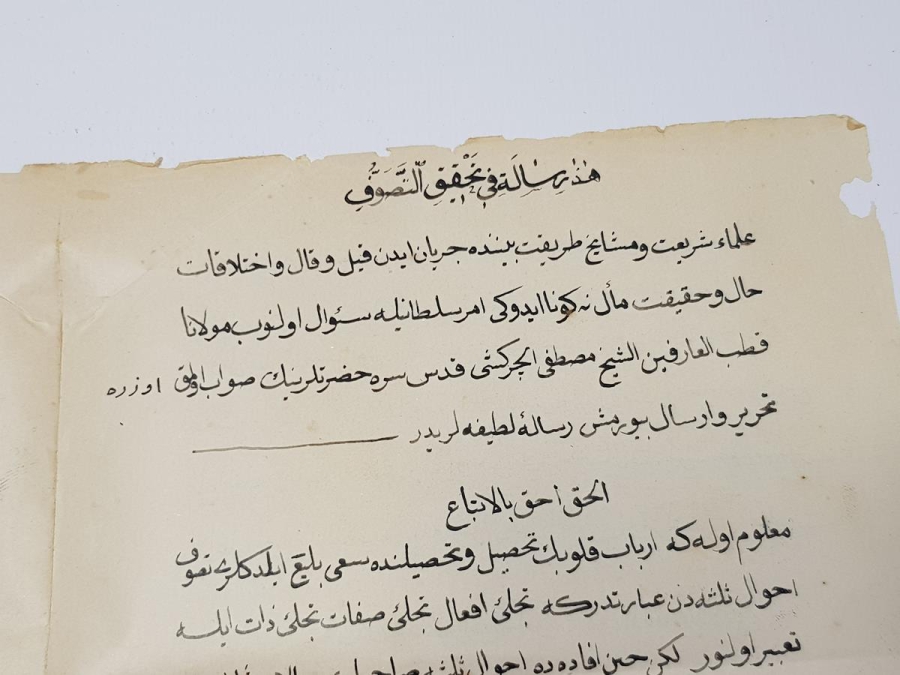 هذه رِسَالَة فِي تَحْقِيقِ ٱلتَّصَوُّفِ
علماء شريعت ومشايخ طريقت بيننده جريان ايدن قيل و قال و اختلافات
حال و حقيقت مآل نه كونا ايدوكى امر سلطانيله سئوال اولنوب مولانا
قطب العارفين الشيخ مصطفى الچركشى قدس سره حضرتلرينك صواب اولمق اوزره
تحرير و ارسال بيورمش رسالۀ لطيفه لريدر
الحق احق بالاتباع
معلوم اوله كه ارباب قلوبك تحصيل و تحصيلنده سعى بليغ ايلدكلرى تصوف
احوال ثلثه دن عبارتدركه تجلئ افعال تجلئ صفات تجلئ ذات ايله
تعبير اولنور لكن حين افاده ده احوال ثلثه